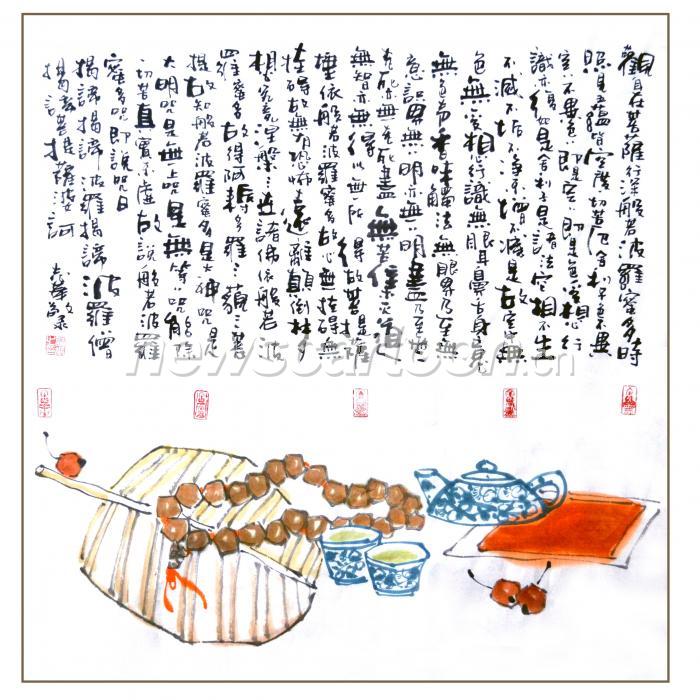 觀自在菩薩行深般若波羅蜜多時
照見五蘊皆空度一切苦厄舍利子色不異
空空不異色色即是空空即是色受想行
識亦復如是舍利子是諸法空相不生
不滅不垢不淨不增不減是故空中無
色無受想行識無眼耳鼻舌身意
無色聲香味觸法無眼界乃至無
意識界無無明亦無無明盡乃至無
老死亦無老死盡無苦集滅道
無智亦無得以無所得故菩提薩
埵依般若波羅蜜多故心無罣礙無
罣礙故無有恐怖遠離顛倒夢
想究竟涅槃三世諸佛依般若波
羅蜜多故得阿耨多羅三藐三菩
提故知般若波羅蜜多是大神咒是
大明咒是無上咒是無等等咒能除
一切苦真實不虛故說般若波羅
蜜多咒即說咒曰
揭諦揭諦波羅揭諦波羅僧
揭諦菩提薩婆訶
newscartoon.cn